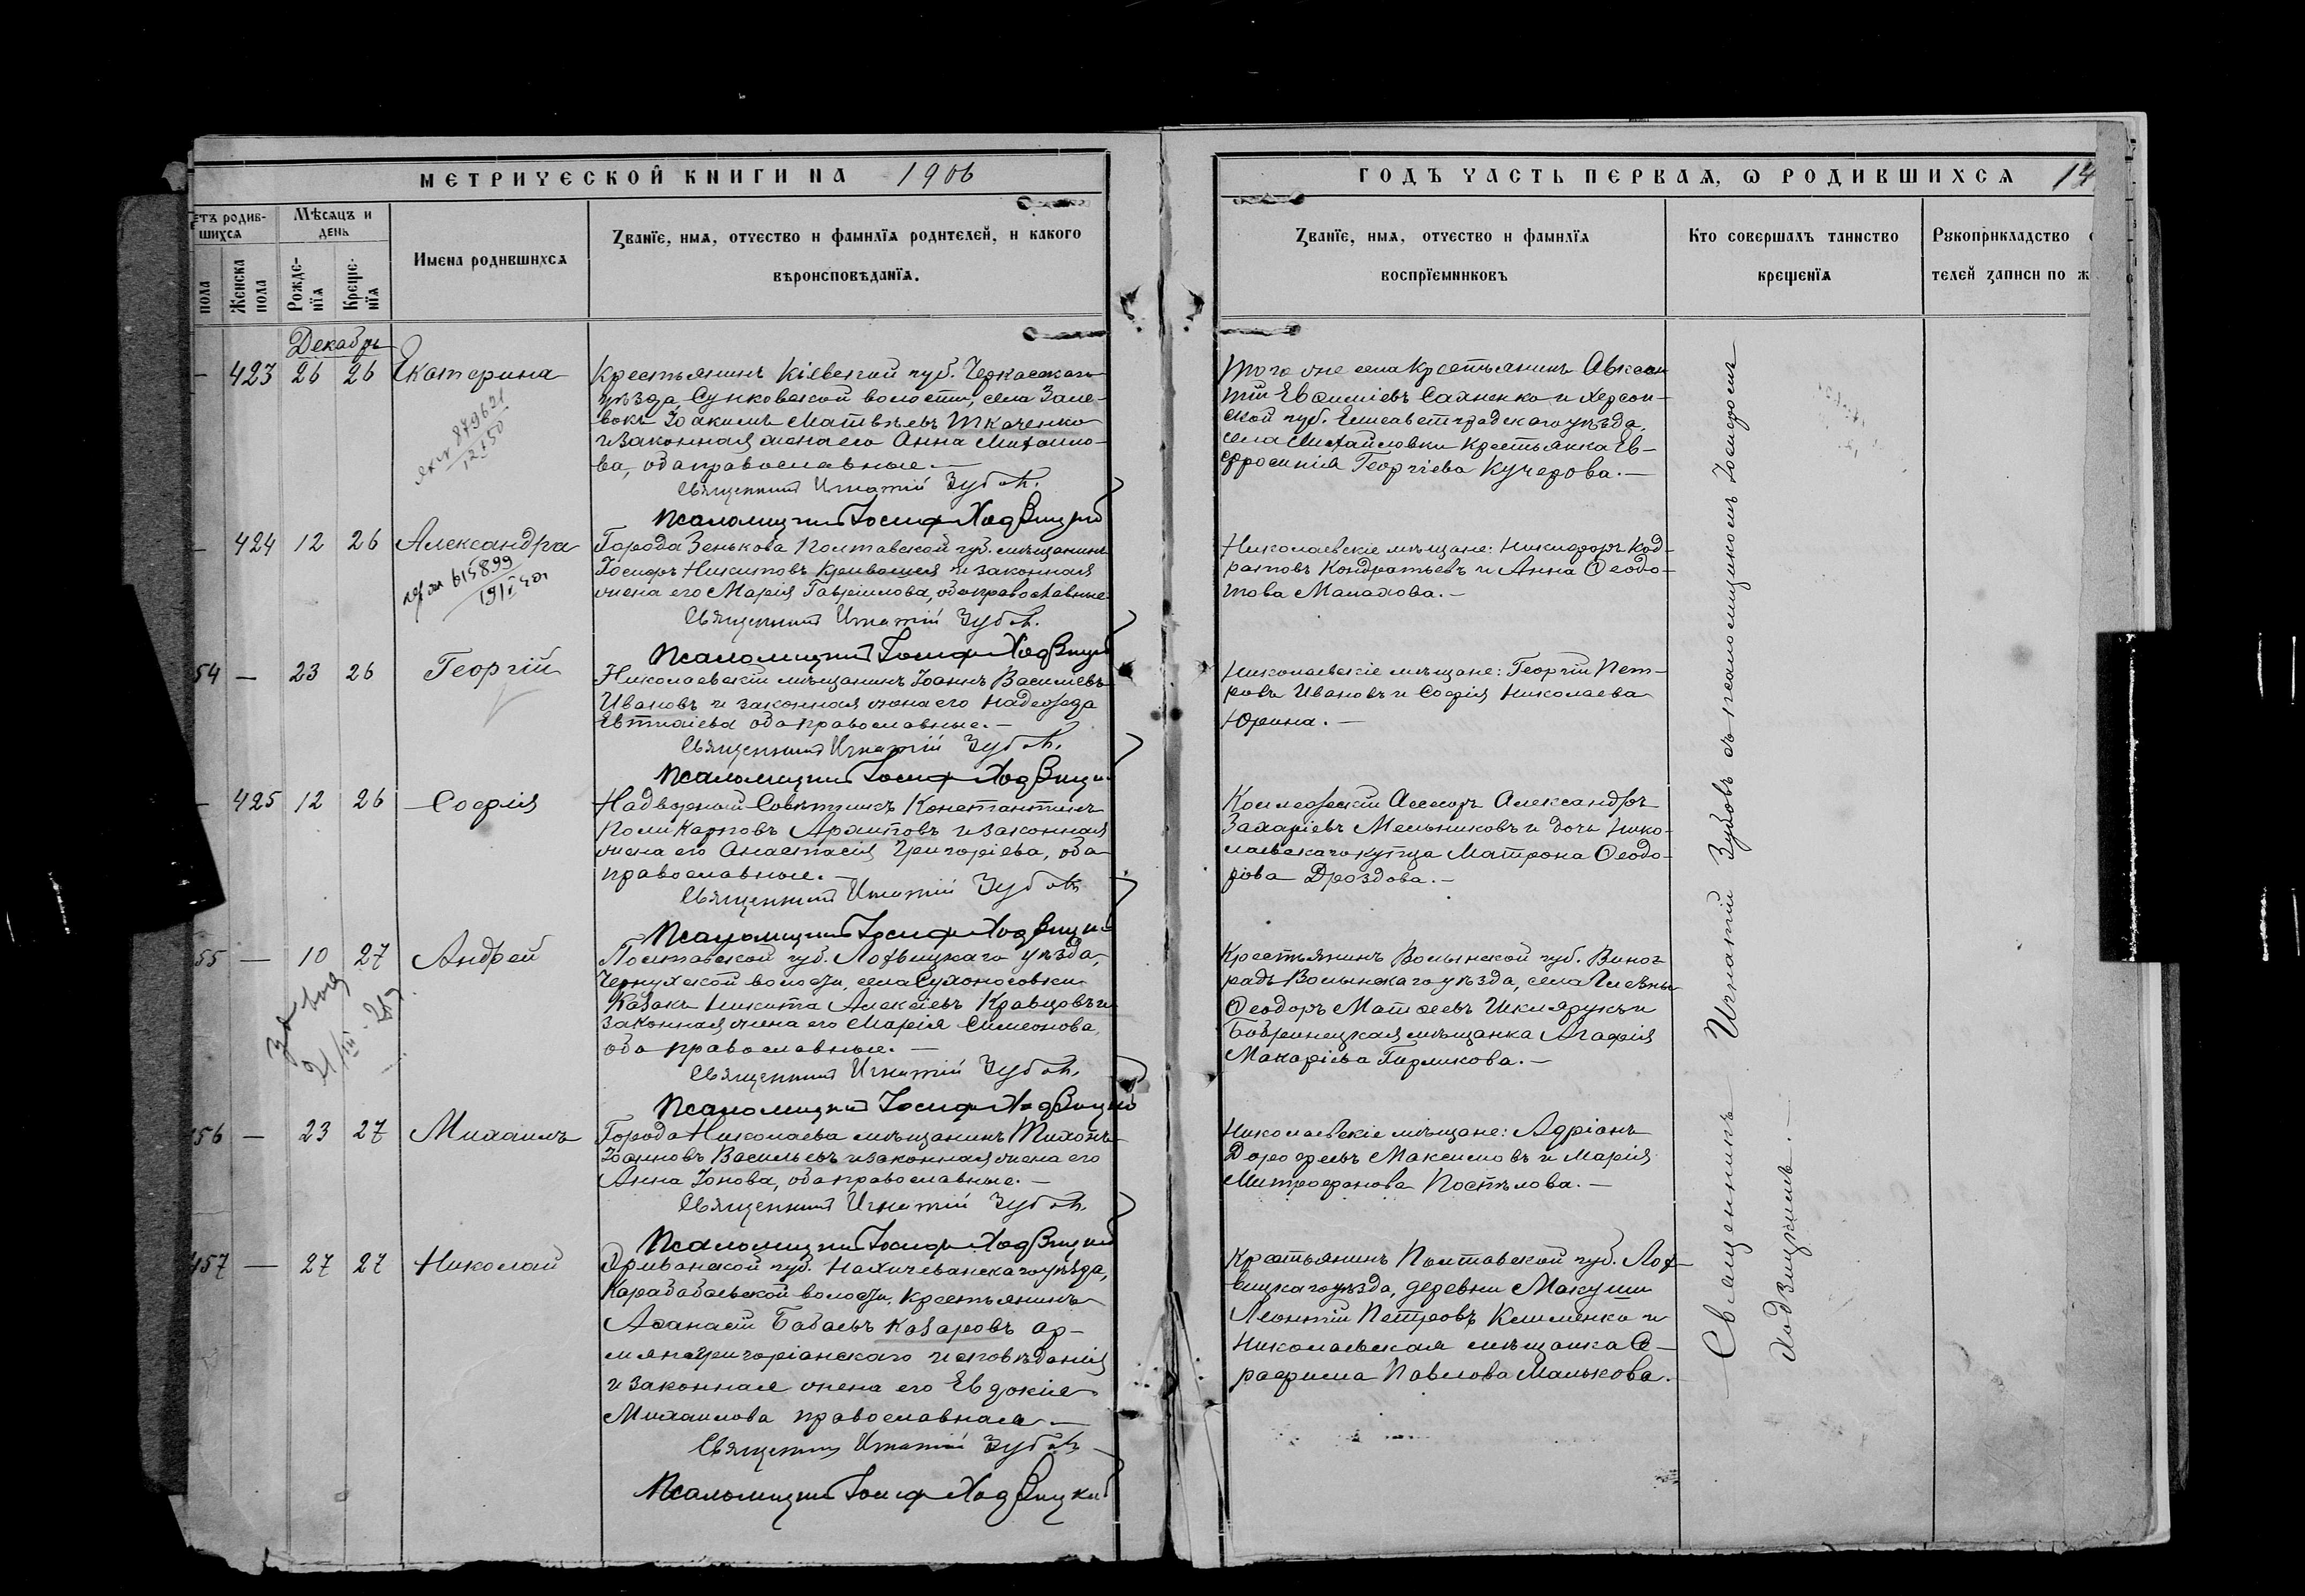 МЕТРИЧЕСКОЙ КНИГИ НА 1906
ГОДЪ ЧАСТЬ ПЕРВАЯ, Ѡ РОДИВШИХСЯ 14
етъ родив-
шихся
пола
Женска пола
Мѣсяцъ и день
Рожде-нїя
Креще-нїя
Имена родившихся
Званїе, имя, отчество и фамилїя родителей, и какого
вѣроисповѣданїя.
Званїе, имя, отчество и фамилїя
воспрїемниковъ
Кто совершалъ таинство
крещенїя
Рукоприкладство
телей записи по ж
Декабрь
— 423 26 26 Екатерина
879621
1250
Крестьянинъ Кіевской губ. Черкасскаго
уѣзда, Сунковской волости, села Зале-
вокъ Іоакимъ Матвѣевъ Ткаченко
и законная жена его Анна Михаило-
ва, оба православные. —
Священникъ Игнатій Зубовъ.
Псаломщикъ Іосифъ Ходзицкій
Того же села крестьянинъ Авксен
тій Евѳиміевъ Сахненко и Херсон-
ской губ. Елисаветградскаго уѣзда,
села Михайловки крестьянка Ев-
фросинія Георгіева Кучерова. —
— 424 12 26 Александра
615899
Города Зенькова Полтавской губ. мѣщанинъ
Іосифъ Никитовъ Кривошея и законная
жена его Марія Гавріилова, оба православные
Священникъ Игнатій Зубовъ.
Псаломщикъ Іосифъ Ходзицкій
Николаевскіе мѣщане: Никифоръ Код-
ратовъ Кондратьевъ и Анна Ѳеодо-
това Малахова. —
54 — 23 26 Георгій
Николаевскій мѣщанинъ Іоаннъ Васильевъ
Ивановъ и законная жена его Надежда
Евтихіева оба православные. —
Священникъ Игнатій Зубовъ.
Псаломщикъ Іосифъ Ходзицкій
Николаевскіе мѣщане: Георгій Пет-
ровъ Ивановъ и Софія Николаева
Юрина. —
— 425 12 26 Софія
Надворный Совѣтникъ Константинъ
Поликарповъ Архиповъ и законная
жена его Анастасія Григоріева, оба
православные. —
Священникъ Игнатій Зубовъ
Псаломщикъ Іосифъ Ходзицкій
Коллежскій Ассесоръ Александръ
Захаріевъ Мельниковъ и дочь Нико-
лаевскаго купца Матрона Ѳеодо-
рова Дроздова. —
55 — 10 27 Андрей
21/III
Полтавской губ. Лохвицкаго уѣзда,
Чернухской волости, села Сухоносовки
казакъ Никита Алексіевъ Кравцовъ и
законная жена его Марія Симеонова,
оба православные. —
Священникъ Игнатій Зубовъ.
Псаломщикъ Іосифъ Ходзицкій
Крестьянинъ Волынской губ.
радъ Волынскаго уѣзда, села
Ѳеодоръ Матѳеевъ Шкляруκъ и
Бобринецкая мѣщанка Агафія
Макаріева Гирликова. —
156 — 23 27 Михаилъ
Города Николаева мѣщанинъ Тихонъ
Іоанновъ Васильевъ и законная жена его
Анна Іонова, оба православные. —
Священникъ Игнатій Зубовъ.
Псаломщикъ Іосифъ Ходзицкій
Николаевскіе мѣщане: Адріанъ
Дорофеевъ Максимовъ и Марія
Митрофанова Постѣлова. —
457 — 27 27 Николай
Эриванской губ. Нахичеванскаго уѣзда,
Карабабаевской волости, крестьянинъ
Аѳанасій Бабаевъ Казаровъ ар-
мяно григоріанскаго исповѣданія
и законная жена его Евдокія
Михаилова православная —
Священникъ Игнатій Зубовъ
Псаломщикъ Іосифъ Ходзицкій
Крестьянинъ Полтавской губ. Лох-
вицкаго уѣзда, деревни Макуши
Леонтій Петровъ Клименко и
Николаевская мѣщанка Се-
рафима Павлова Малькова.
Священникъ Игнатій Зубовъ съ псаломщикомъ Іосифомъ
Ходзицкимъ. —